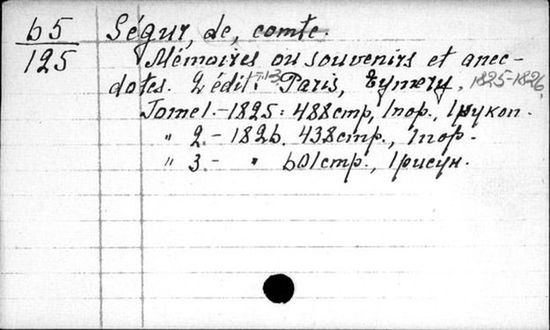 65
125
Ségur, de, comte.
Mémoires ou souvenirs et anec-
dotes. 2 édit. т1-3 Paris, Eymery. 1825-1826.
Tome 1.-1825: 488стр, 1пор., 1рукоп.
" 2.- 1826. 438стр., 1пор.
" 3.- " 601стр., 1рисун.